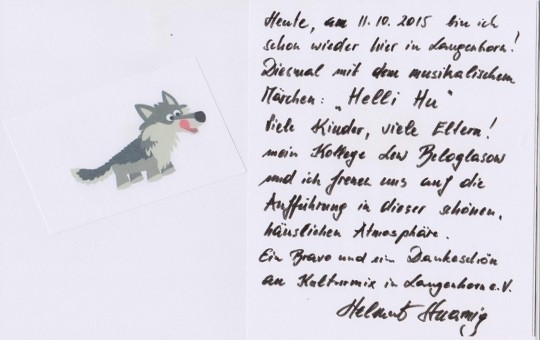 Heute, am 11.10.2015 bin ich
schon wieder hier in Langenhorn!
Diesmal mit dem musikalischem
Märchen: „Helli Hu"
Viele Kinder, viele Eltern!
mein Kollege Lew Beloglasow
und ich freuen uns auf die
Aufführung in dieser schönen,
häuslichen Atmosphäre.
Ein Bravo und ein Dankeschön
an Kulturmix in Langenhorn e.V.
Helmut